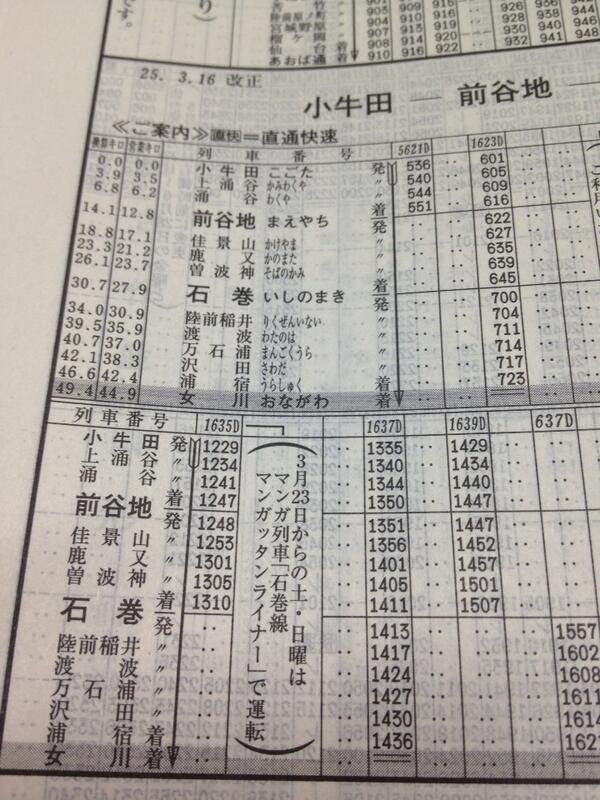 25. 3.16 改正
小牛田 ― 前谷地 ―
≪ご案内≫直快＝直通快速
換算キロ 営業キロ 列車番号 5621D 1623D
0.0 0.0 小牛田 こごた 発 536 ‥ 601
3.9 3.5 上涌谷 かみわくや 〃 540 ‥ 605
6.8 6.2 涌谷 わくや 〃 544 ‥ 609
14.1 12.8 前谷地 まえやち 着 551 ‥ 616
発 ‥ ‥ 622
18.8 17.1 佳景山 かけやま 〃 ‥ ‥ 627
23.3 21.2 鹿又 かのまた 〃 ‥ ‥ 635
26.1 23.7 曽波神 そばのかみ 〃 ‥ ‥ 639
30.7 27.9 石巻 いしのまき 着 ‥ ‥ 645
発 ‥ ‥ 700
34.0 30.9 陸前稲井 りくぜんいない 〃 ‥ ‥ 704
39.5 35.9 渡波 わたのは 〃 ‥ ‥ 711
40.7 37.0 万石浦 まんごくうら 〃 ‥ ‥ 714
42.1 38.3 沢田 さわだ 〃 ‥ ‥ 717
46.6 42.4 浦宿 うらしゅく 着 ‥ ‥ 723
49.4 44.9 女川 おながわ 着
列車番号 1635D 1637D 1639D 637D
小牛田 発 1229 ‥ 1335 ‥ 1429 ‥
上涌谷 〃 1234 ‥ 1340 ‥ 1434 ‥
涌谷 〃 1241 ‥ 1344 ‥ 1440 ‥
前谷地 着 1247 ‥ 1350 ‥ 1447 ‥
発 1248 ‥ 1351 ‥ 1447 ‥
佳景山 〃 1253 ‥ 1356 ‥ 1452 ‥
鹿又 〃 1301 ‥ 1401 ‥ 1457 ‥
曽波神 〃 1305 ‥ 1405 ‥ 1501 ‥
石巻 着 1310 ‥ 1411 ‥ 1507 ‥
発 ‥ ‥ 1413 ‥ ‥ ‥ 1557
陸前稲井 〃 ‥ ‥ 1417 ‥ ‥ ‥ 1602
渡波 〃 ‥ ‥ 1424 ‥ ‥ ‥ 1608
万石浦 〃 ‥ ‥ 1427 ‥ ‥ ‥
沢田 〃 ‥ ‥ 1430 ‥ ‥ ‥
浦宿 着 ‥ ‥ 1436 ‥ ‥ ‥
女川 着
（3月23日からの土・日曜は
マンガ列車「石巻線
マンガッタンライナー」で運転）